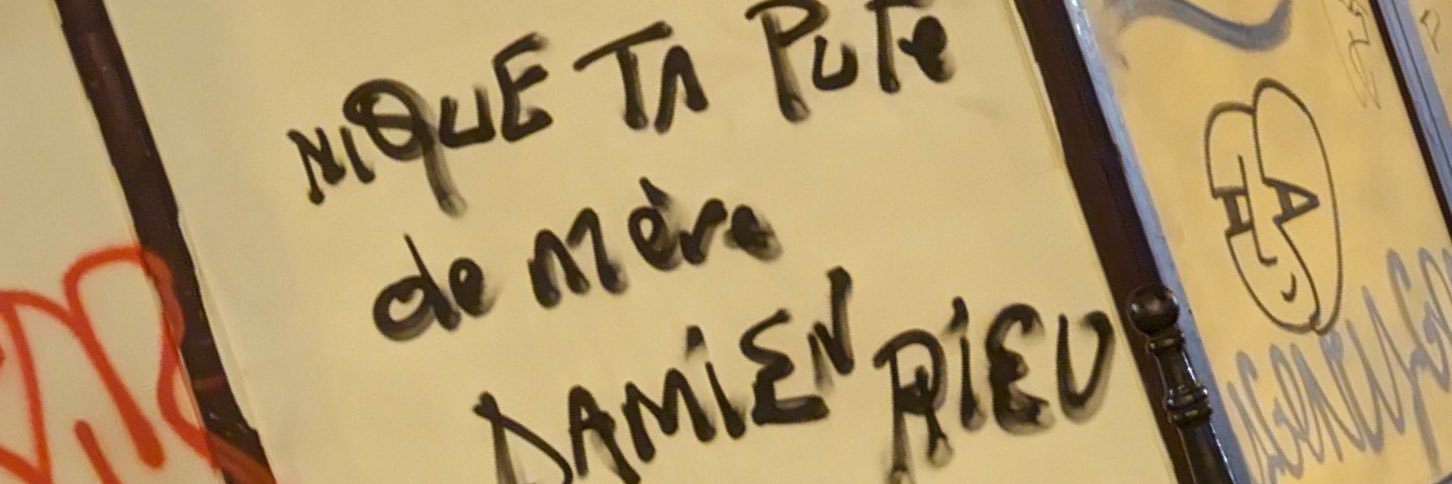 NIQUE TA PUTE
de mère
DAMIEN RIEU